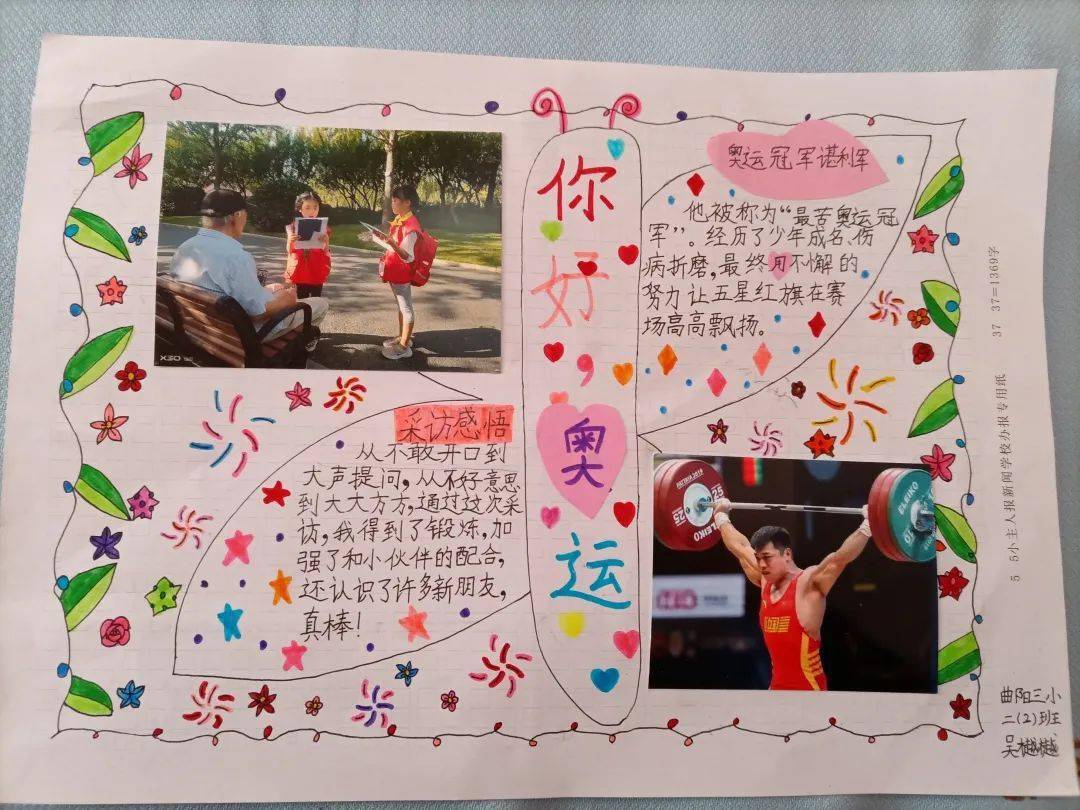 你好，奥运
奥运冠军谌利军
他被称为“最苦奥运冠
军”。经历了少年成名、伤
病折磨，最终用不懈的
努力让五星红旗在赛
场高高飘扬。
采访感悟
从不敢开口到
大声提问，从不好意思
到大大方方，通过这次采
访，我得到了锻炼，加
强了和小伙伴的配合，
还认识了许多新朋友，
真棒！
X30
ELEIKO
25
ELEIKO
中国
5 5小主人报新闻学校办报专用纸 37 37=1369字
曲阳三小
二(2)班
吴樾樾